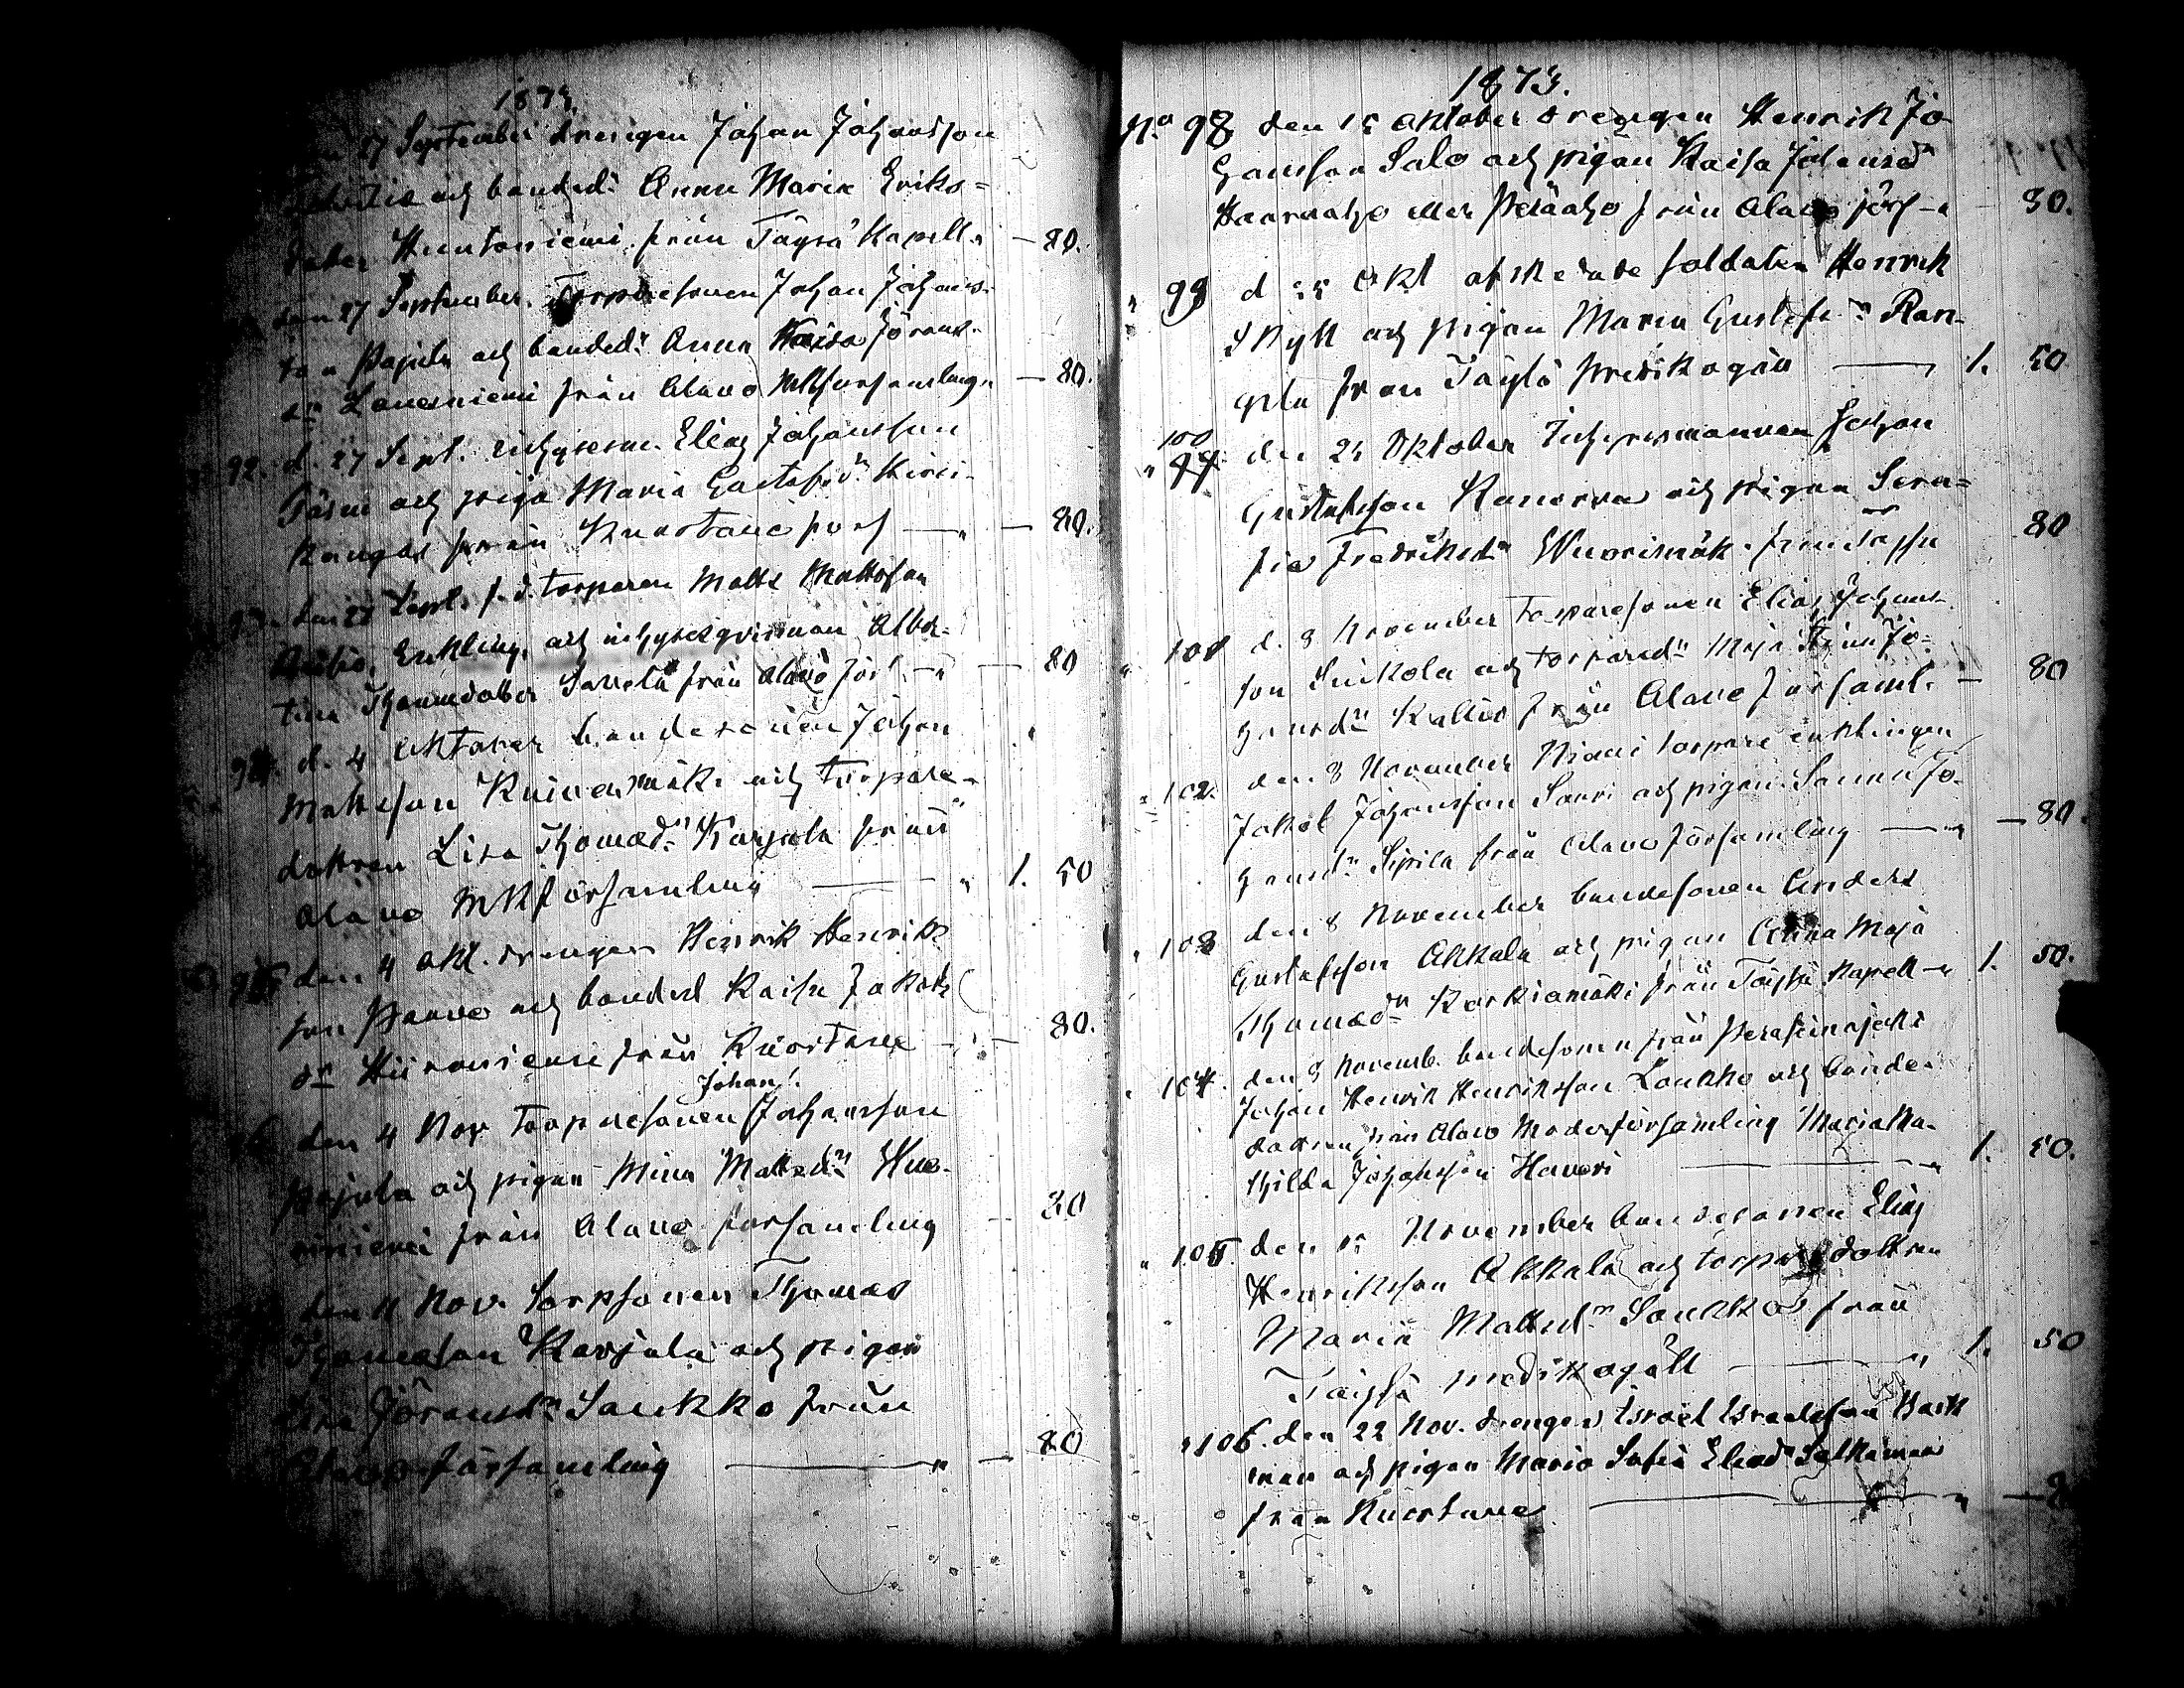 1873.
27 September drengen Johan Johansson
och bonded:n Anna Maria Eriks=
doter Huntoniemi från Töysä Kapell. — 80.
den 27 September. Torparesonen Johan Johans-
son Pajula och bonded:n Anna Kaisa Jörans-
dn Louesniemi från Alavo Mkförsamling " — 80.
92. d. 27 Sept. inhysesm. Elias Johansson
och piga Maria Gustafsdn
kangas från Kuortane förs — " — 80.
den 27 Sept. f.d. torparen Matts Mattsson
Enkling, och inhysesqvinnan Alber=
tina Thomasdotter Savela från Alavo för — " — 80
94. d. 4 Oktober bondesonen Johan
Mattsson Kuivasmäki och torpare-
dottren Lisa Thomasdn Karjula från
Alavo Mkförsamling — " 1. 50
95 den 4 Okt. drengen Henrik Henriks
son Paavo och bonded Kaisa Jakobs
dn Hiironiemi från Kuortane — " — 80.
Johan
den 4 Nov torparesonen Johansson
Pajula och pigan Mina Mattsdn Hue-
niniemi från Alavo församling — 80
den 4 Nov. Torpsonen Thomas
Thomasson Karjula och pigan
Lisa Göransdn Saukko från
Alavo församling — " — 80
1873.
No 98 den 15 Oktober drengen Henrik Jo
hansson Salo och pigan Kaisa Johansdn
Haarvaho eller Peräaho från Alavo förs — " 80.
" 99 d 25 Okt afskedade soldaten Henrik
Skytt och pigan Maria Gustafsdn Ran-
gsla från Töysä predikogäll — " 1. 50
100
" 99 den 25 Oktober Inhysesmannen Johan
Gustafsson Kanerva och pigan Sera=
fia Fredriksdn Wuorimäk. från Töysä 80
" 101 d. 8 November Torparesonen Elias Johans-
son Suikola och torparedn Maja Stina Jo-
hansdn Kallio från Alavo församl. — 80
" 102. den 8 November torpare enklingen
Jakob Johansson Sauri och pigan Sanna Jo-
hansdn Sipila från Alavo församling — " — 80.
" 103 den 8 November bondesonen Anders
Gustafsson Akkala och pigan Anna Maja
Thomasdn Karkiamäki från Töysä Kapell — " 1. 50.
" 104. den 8 Novemb. bondesonen från Peräseinäjoki
Johan Henrik Henriksson Laukko och bonde-
dottren från Alavo Moderförsamling Maria Ma-
thilda Johansson Haveri — " 1. 50.
" 105. den 15 November bondesonen Elias
Henriksson Akkala och torparedottren
Maria Mattsdn Saukko från
Töysä predikogäll — " 1. 50
" 106. den 22 Nov. drengen Israel Israelsson Back
man och pigan Maria Sofia Eliasdn
från Kuortane — " —